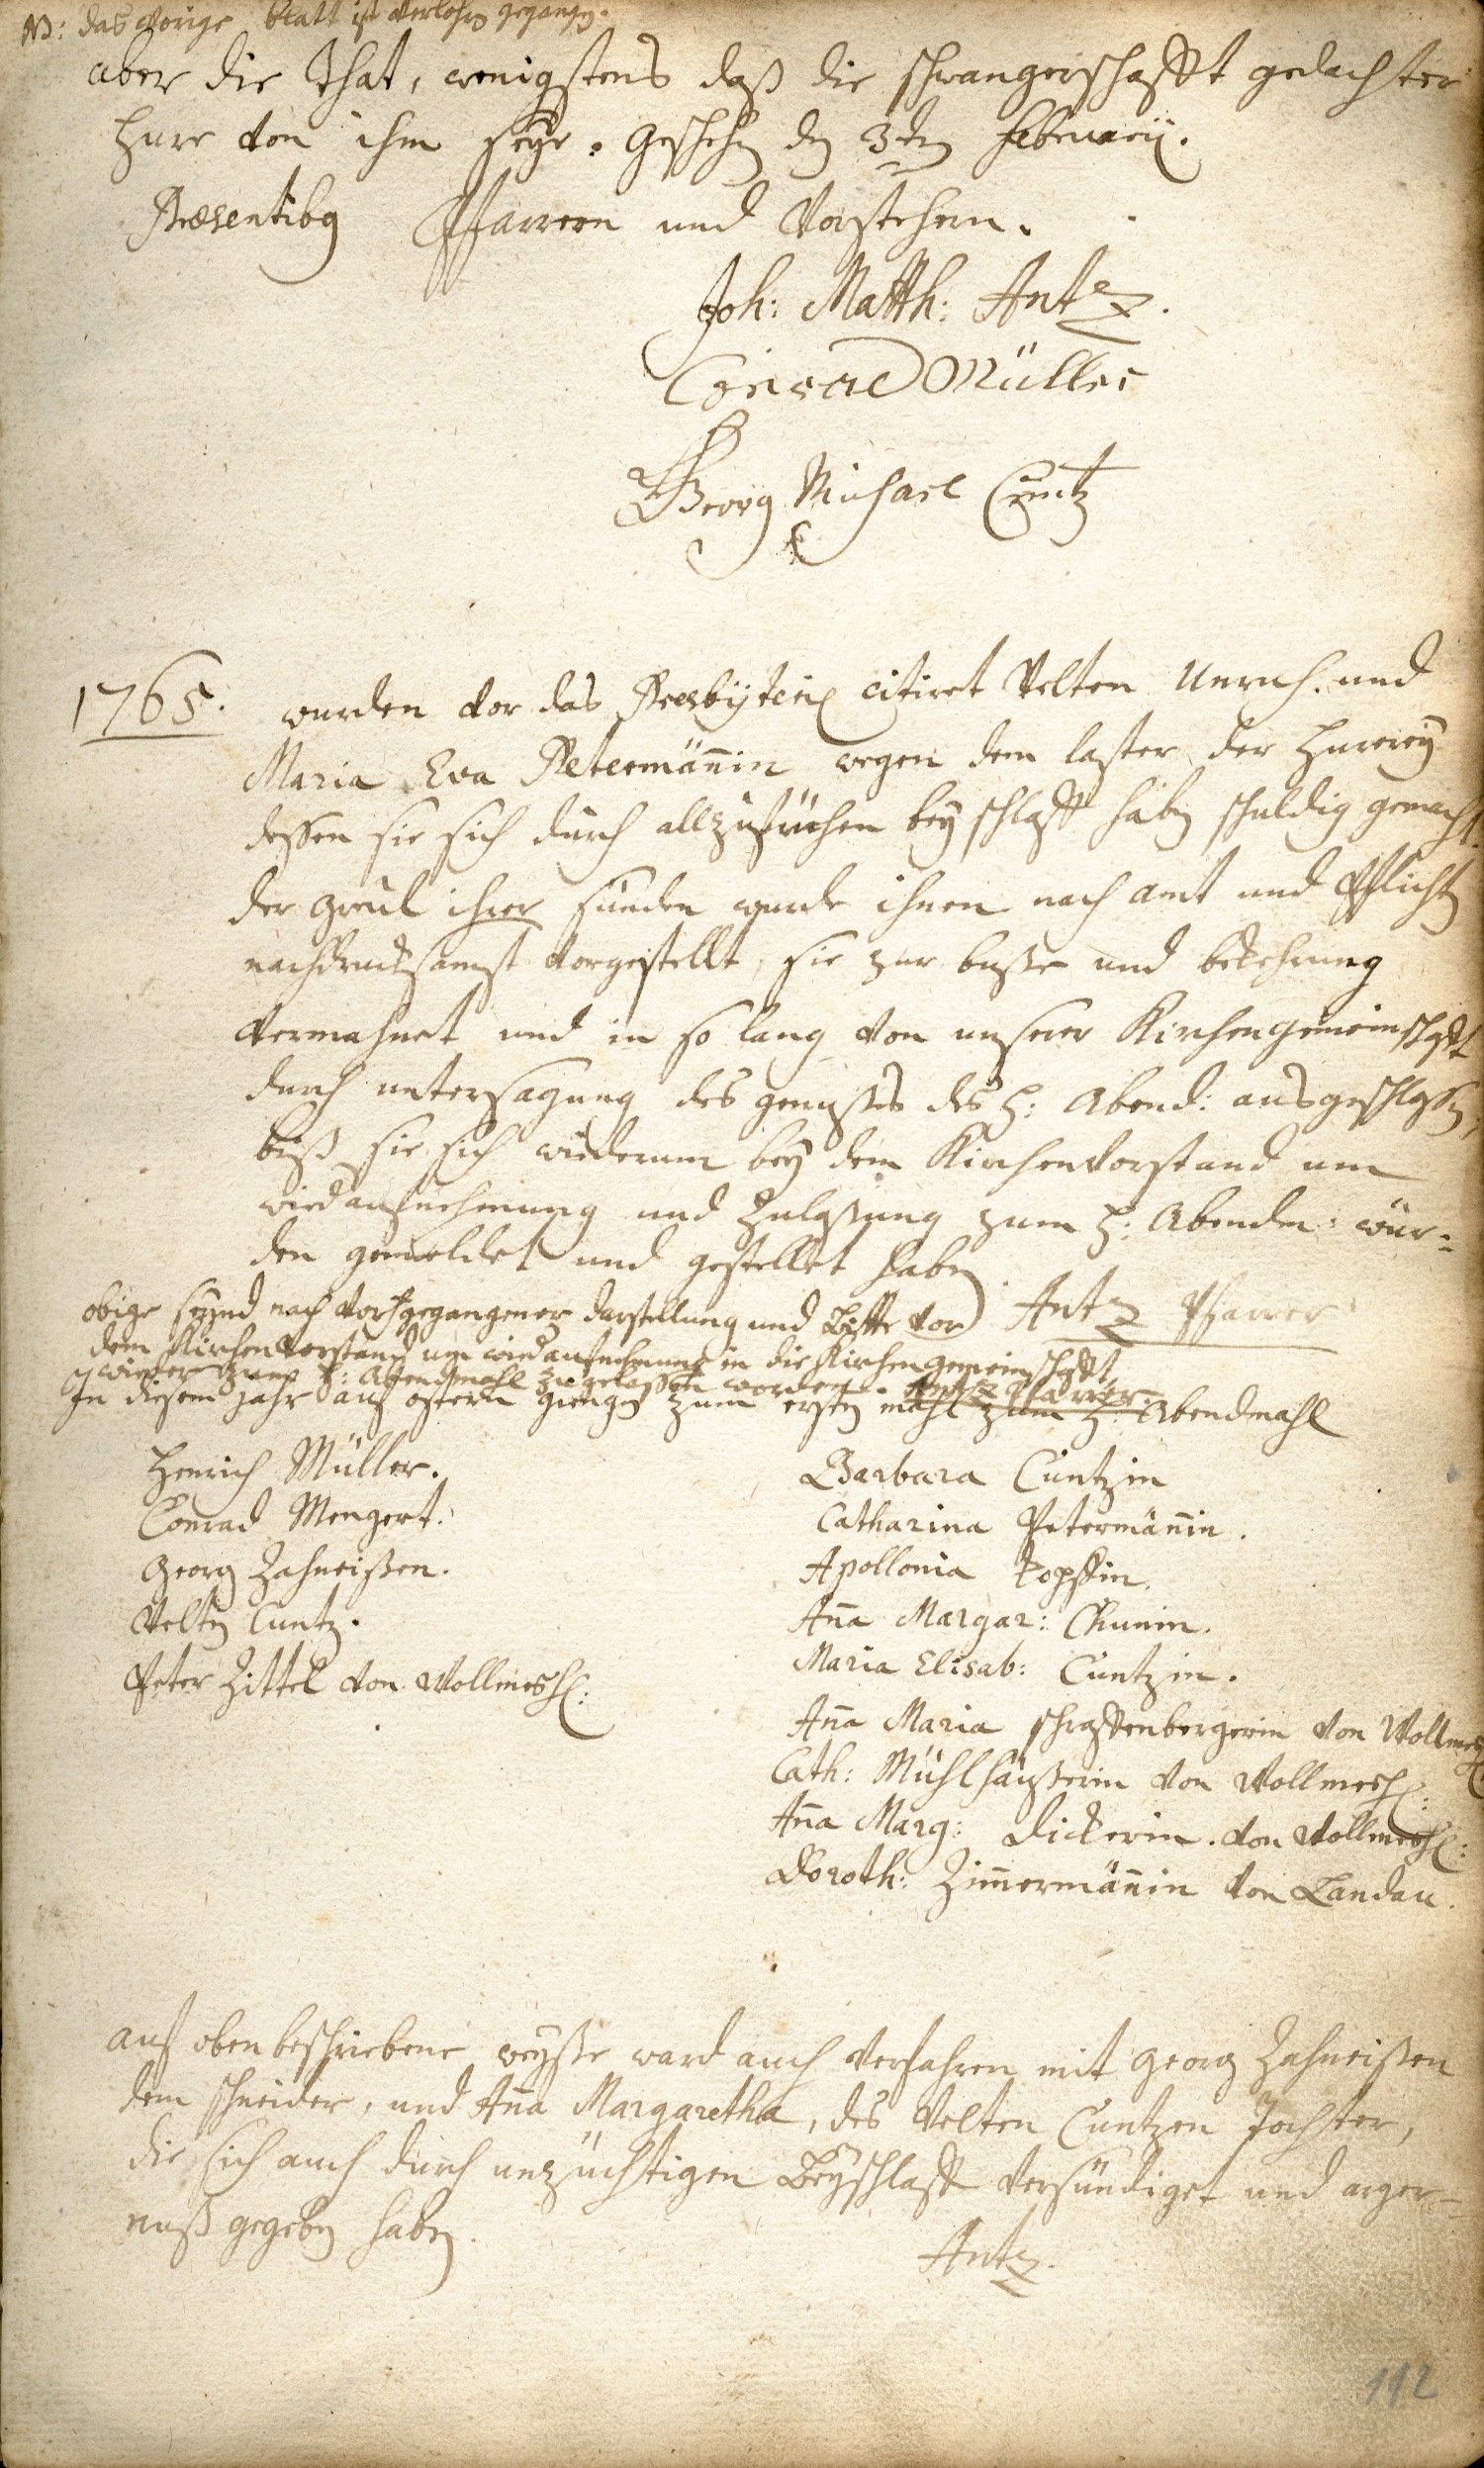 NB: das vorige blatt ist verlohrn gegangen.
aber die That, wenigstens daß die schwangerschafft gedachter
Hure von ihm seye. Geschehen den 3ten februarij.
Præsentibus Pfarrern und Vorstehern.
Joh: Matth: Antz.
Conrad Müller
Georg Michael Cuntz
1765. wurden vor das Presbyterium citiret Velten Unruh. und
Maria Eva Petermännin wegen dem laster der Hurerey
dessen sie sich durch allzufrühen beyschlaff haben schuldig gemacht.
der greul ihrer sünden wurde ihnen nach amt und Pflicht
nachdrucksamst vorgestellt, sie zur buße und bekehrung
vermahnet und in so lang von unserer Kirchengemeinschafft
durch untersagung des genußes des H: Abend: ausgeschloßen,
biß sie sich wiederum bey dem Kirchenvorstand um
wiedaufnehmung und Zulaßung zum H: Abendm: wür=
den gemeldet und gestellet haben. Antz Pfarrer
obige seynd nach vorhergegangener darstellung und Bitte vor
dem Kirchenvorstand um wiedaufnehmung in die Kirchengemeinschafft
wieder zum H: Abendmahl zugelassen worden. Antz Pfarrer.
In diesem Jahr auf ostern giengen zum ersten mahl zum H. Abendmahl
Henrich Müller.
Conrad Mengert.
Georg Zahneißen.
Velten Cuntz.
Peter Zittel von Wollmesh:
Barbara Cuntzin
Catharina Petermännin.
Apollonia Kopffin.
Aña Margar: Chunin.
Maria Elisab: Cuntzin.
Aña Maria schraffenbergerin von Wollmesh
Cath: Mühlhäußerin von Wollmesh:
Aña Marg: Dickerin. von Wollmesh:
Doroth: Zim̄ermäñin von Landau.
auf oben beschriebene weyße ward auch verfahren mit Georg Zahneißen
dem schneider, und Aña Margaretha, des Velten Cuntzen Tochter,
die sich auch durch unzüchtigen Beyschlaff versündiget und arger=
nuß gegeben haben.
Antz.
112